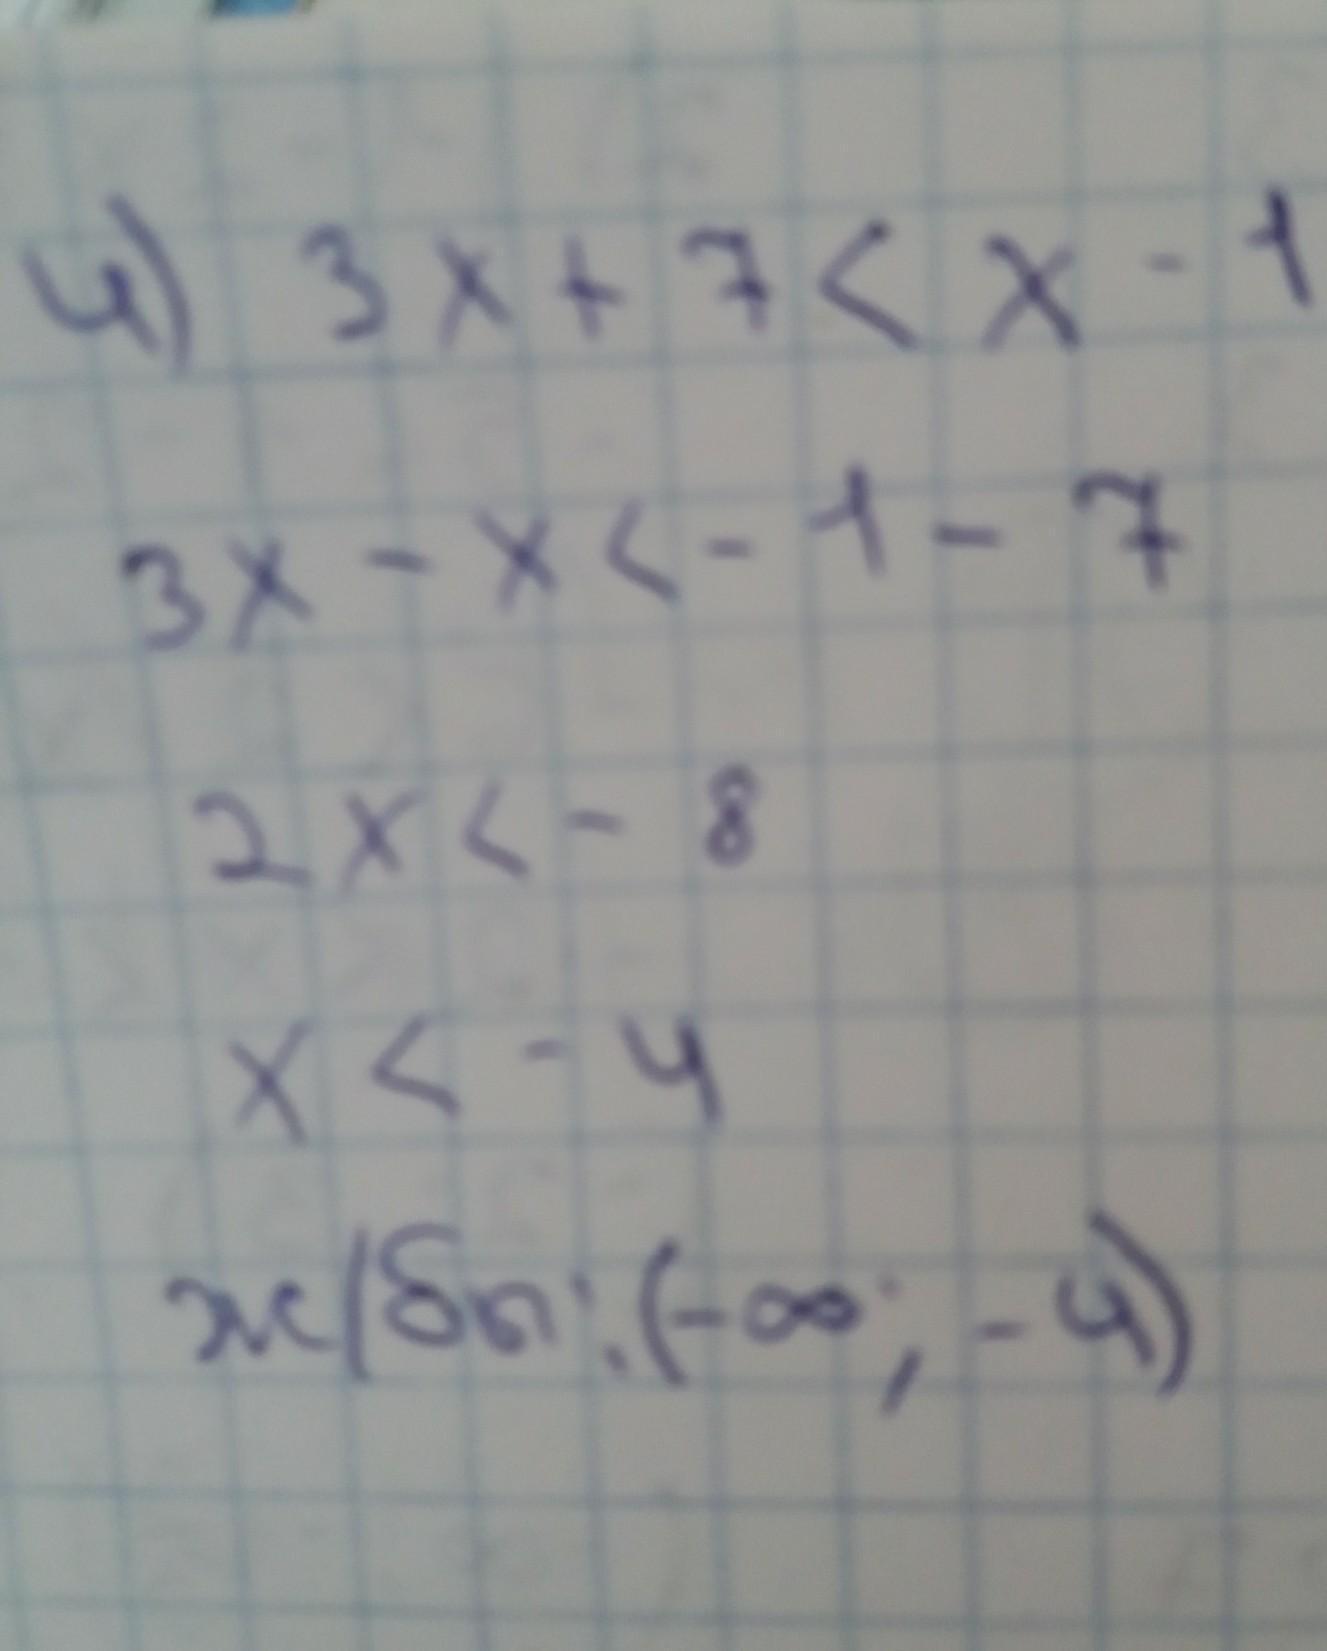 4) 3x + 7 < x - 1
3x - x < - 1 - 7
2x < - 8
x < - 4
ж/бы: (-∞; -4)